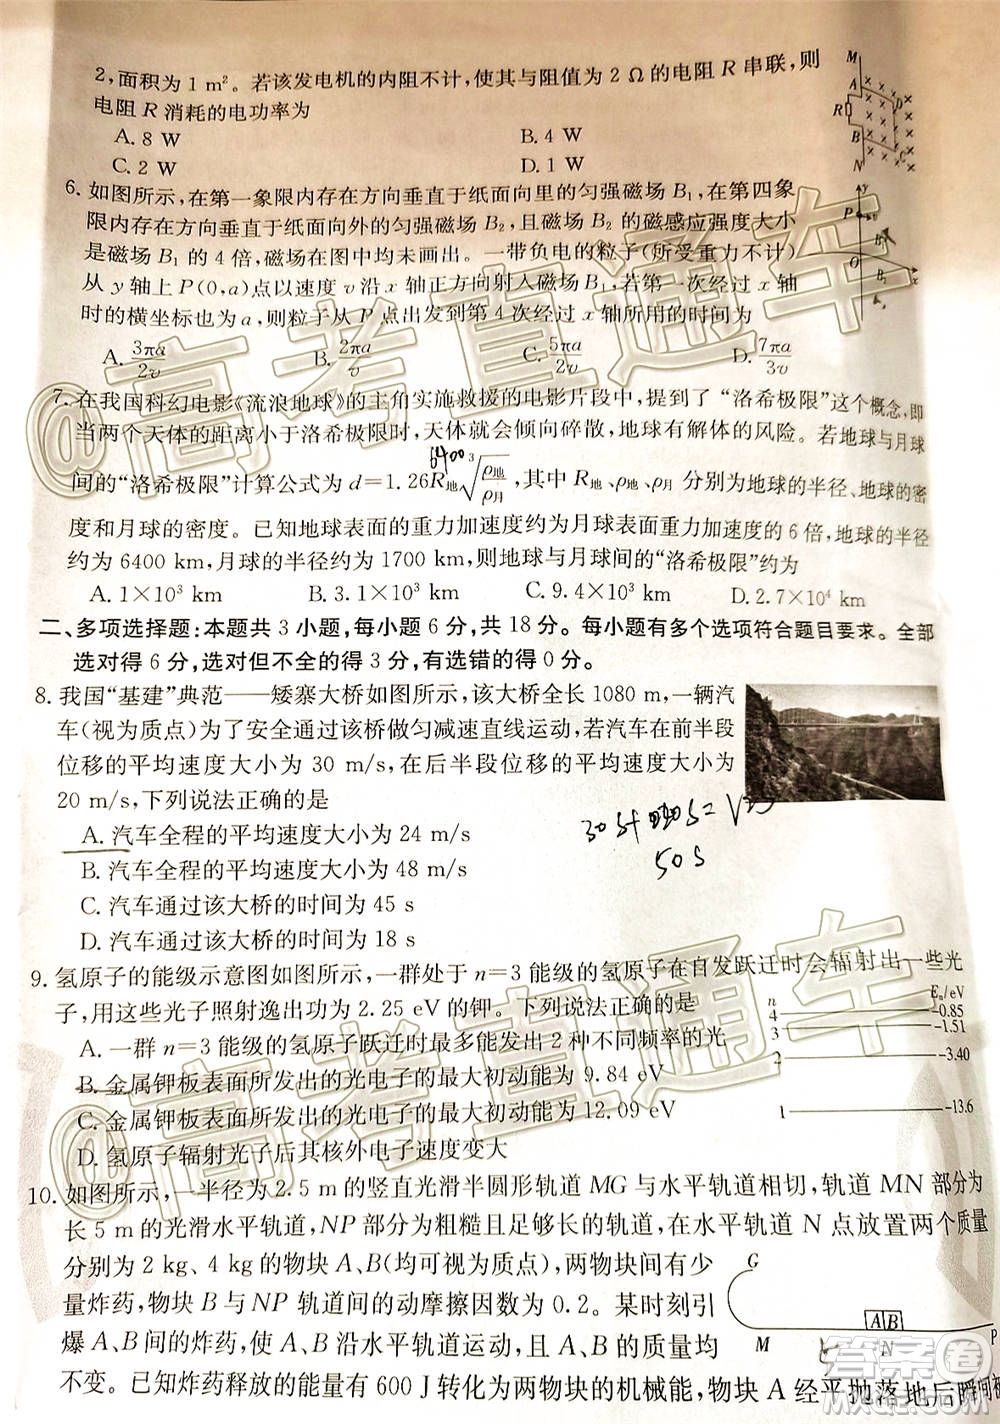 2,面积为 1 m²。若该发电机的内阻不计,使其与阻值为 2 Ω 的电阻 R 串联,则
电阻 R 消耗的电功率为
A. 8 W B. 4 W
C. 2 W D. 1 W
M
A
D
R
B
C
N
6. 如图所示,在第一象限内存在方向垂直于纸面向里的匀强磁场 B₁,在第四象
限内存在方向垂直于纸面向外的匀强磁场 B₂,且磁场 B₂ 的磁感应强度大小
是磁场 B₁ 的 4 倍,磁场在图中均未画出。一带负电的粒子(所受重力不计)
从 y 轴上 P(0,a)点以速度 v沿 x 轴正方向射入磁场B₁,若第一次经过 x 轴
时的横坐标也为 a,则粒子从 P 点出发到第 4 次经过 x 轴所用的时间为
A. 3πa/2v B. 2πa/v C. 5πa/2v D. 7πa/3v
y
P
O
x
7. 在我国科幻电影《流浪地球》的主角实施救援的电影片段中,提到了“洛希极限”这个概念,即
当两个天体的距离小于洛希极限时,天体会倾向碎散,地球有解体的风险。若地球与月球
6400
间的“洛希极限”计算公式为 d=1.26R地∛(ρ地/ρ月),其中 R地、ρ地、ρ月 分别为地球的半径、地球的密
度和月球的密度。已知地球表面的重力加速度约为月球表面重力加速度的 6 倍,地球的半径约
为 6400 km,月球的半径约为 1700 km,则地球与月球间的“洛希极限”约为
A. 1×10³ km B. 3.1×10³ km C. 9.4×10³ km D. 2.7×10⁴ km
二、多项选择题:本题共 3 小题,每小题 6 分,共 18 分。每小题有多个选项符合题目要求。全部
选对得 6 分,选对但不全的得 3 分,有选错的得 0 分。
8. 我国“基建”典范——矮寨大桥如图所示,该大桥全长 1080 m,一辆汽
车(视为质点)为了安全通过该桥做匀减速直线运动,若汽车在前半段
位移的平均速度大小为 30 m/s,在后半段位移的平均速度大小为
20 m/s,下列说法正确的是
A. 汽车全程的平均速度大小为 24 m/s
B. 汽车全程的平均速度大小为 48 m/s
C. 汽车通过该大桥的时间为 45 s
D. 汽车通过该大桥的时间为 18 s
50 s
9. 氢原子的能级示意图如图所示,一群处于 n=3 能级的氢原子在自发跃迁时会辐射出一些光
子,用这些光子照射逸出功为 2.25 eV的钾。下列说法正确的是
A. 一群 n=3 能级的氢原子跃迁时最多能发出 2 种不同频率的光
B. 金属钾板表面所发出的光电子的最大初动能为 9.84 eV
C. 金属钾板表面所发出的光电子的最大初动能为 12.09 eV
D. 氢原子辐射光子后其核外电子速度变大
n Eₙ/eV
4 -0.85
3 -1.51
2 -3.40
1 -13.6
10. 如图所示,一半径为 2.5 m 的竖直光滑半圆形轨道 MG 与水平轨道相切,轨道 MN 部分为
长 5 m 的光滑水平轨道,NP 部分为粗糙且足够长的轨道,在水平轨道 N 点放置两个质量
分别为 2 kg、4 kg 的物块 A、B(均可视为质点),两物块间有少
量炸药,物块 B 与 NP 轨道间的动摩擦因数为 0.2。某时刻引
爆 A、B 间的炸药,使 A、B 沿水平轨道运动,且 A、B 的质量均
不变。已知炸药释放的能量有 600 J转化为两物块的机械能,物块 A 经平抛落地后瞬间被
G
A B
M N P
@高考直通车
@高考直通车
答案圈